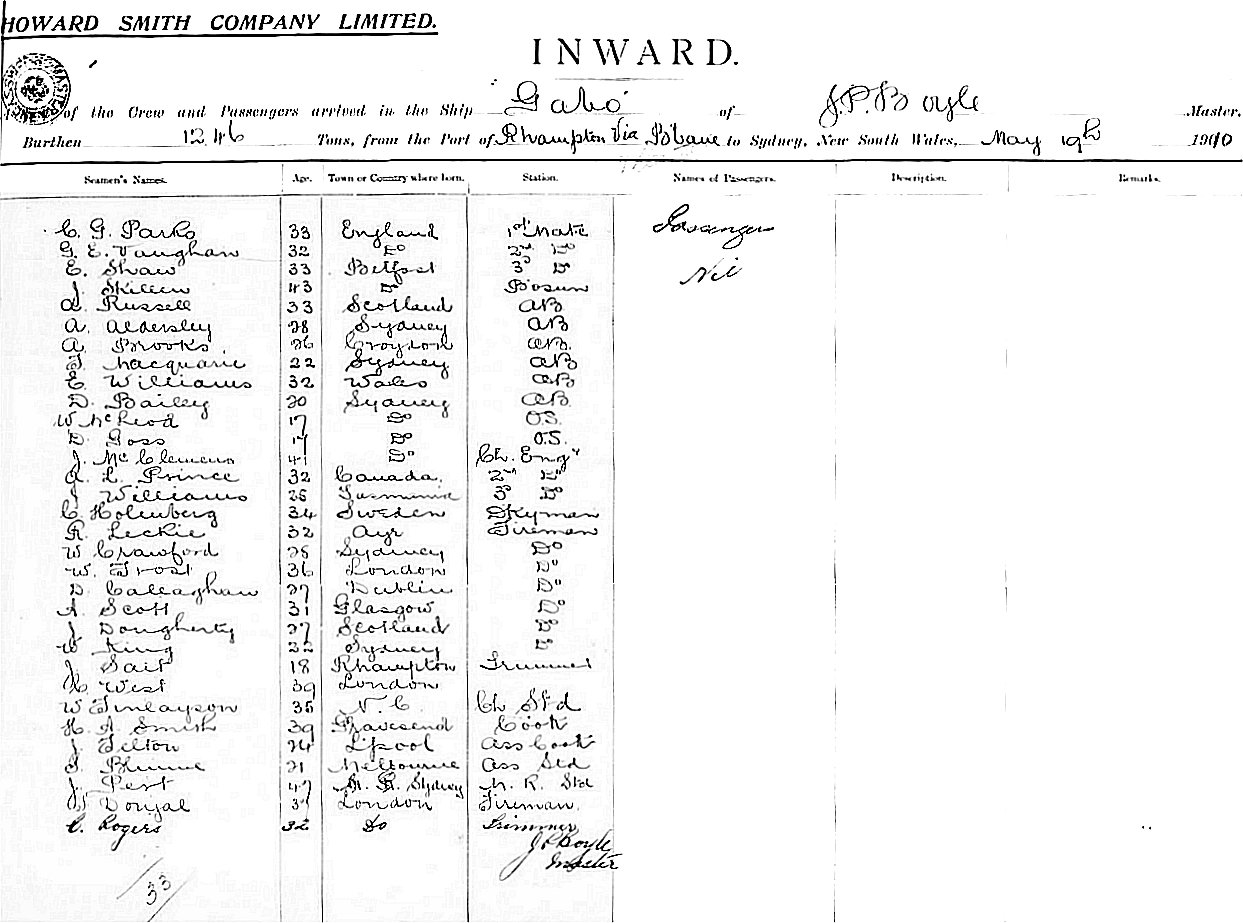 HOWARD SMITH COMPANY LIMITED.
INWARD.
of the Crew and Passengers arrived in the Ship Gabo of J.P. Boyle Master,
Burthen 1246 Tons, from the Port of Rhampton Via B'bane to Sydney, New South Wales, May 19th 1910
Seamen's Names. Age. Town or Country where born. Station. Names of Passengers. Description. Remarks.
C. G. Parks 33 England 1st Mate Passengers
G. E. Vaughan 32 Do 2nd Do
E. Shaw 33 Belfast 3rd Do Nil
J. Skillen 43 Do Bosun
A. Russell 33 Scotland AB
A. Aldersley 28 Sydney AB
A. Brooks 26 Croydon AB
T. Macquarie 22 Sydney AB
E. Williams 32 Wales AB
D. Bailey 20 Sydney AB
W McLeod 17 Do O.S.
D. Goss 17 Do O.S.
J. McClemens 41 Do Ch. Engr
A. L. Prince 32 Canada. 2nd Do
Williams 25 Tasmania 3rd Do
C. Holenberg 34 Sweden Dkyman
R. Leckie 32 Ayr Fireman
W Crawford 25 Sydney Do
W. Frost 36 London Do
D Callaghan 27 Dublin Do
A. Scott 31 Glasgow Do
J Dougherty 27 Scotland Do
W King 22 Sydney Do
J. Sait 18 Rhampton Trimmer
West 39 London
W Finlayson 35 N. C. Ch Std
H. A Smith 39 Gravesend Cook
J. Felton 24 L'pool Ass Cook
21 Melbourne Ass Std
J. Pert 47 Sydney M. R. Std
37 London Fireman.
C. Rogers 32 Do Trimmer
J P Boyle
Master
33